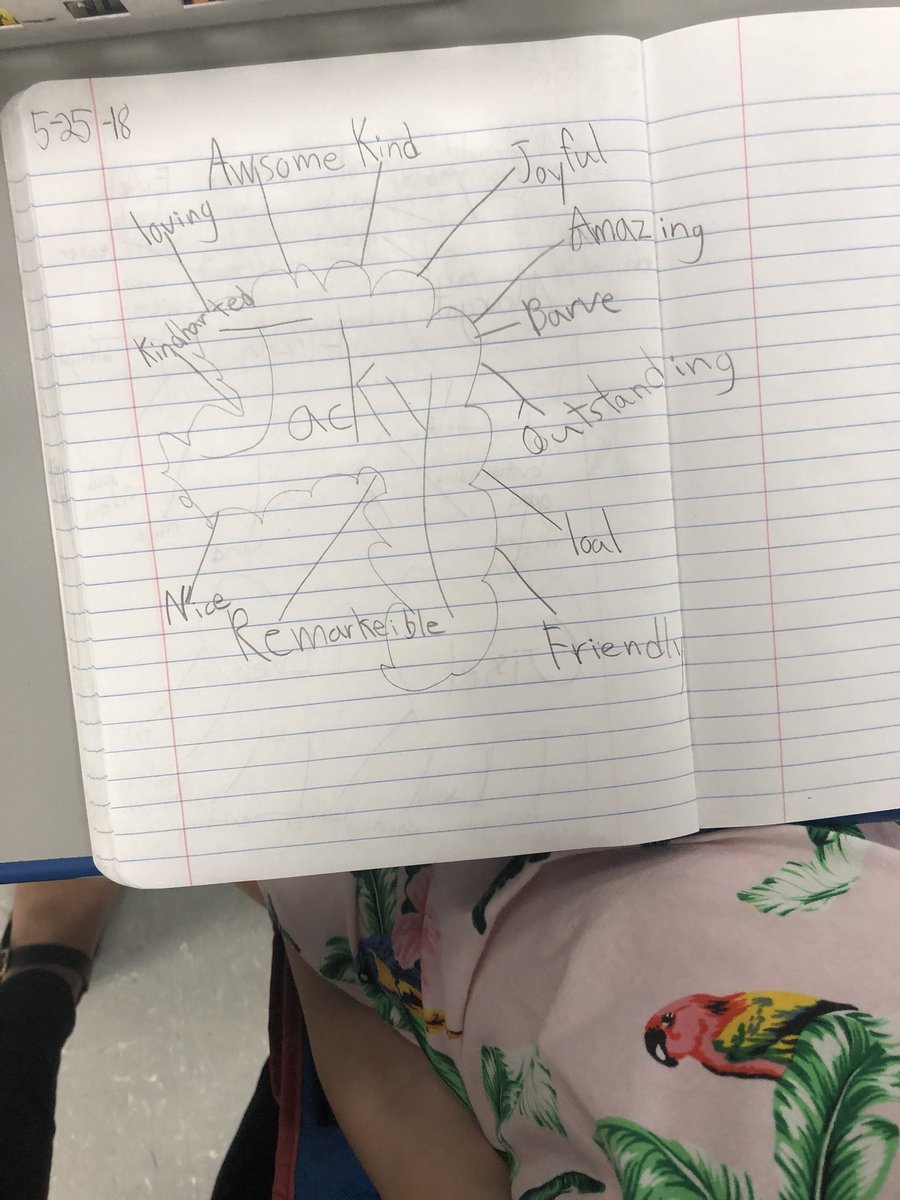 5-25-18
Awsome Kind
Joyful
loving
Amazing
Kindharted
Barve
Jacky
Outstanding
loal
Nice
Remarkeible
Friendly